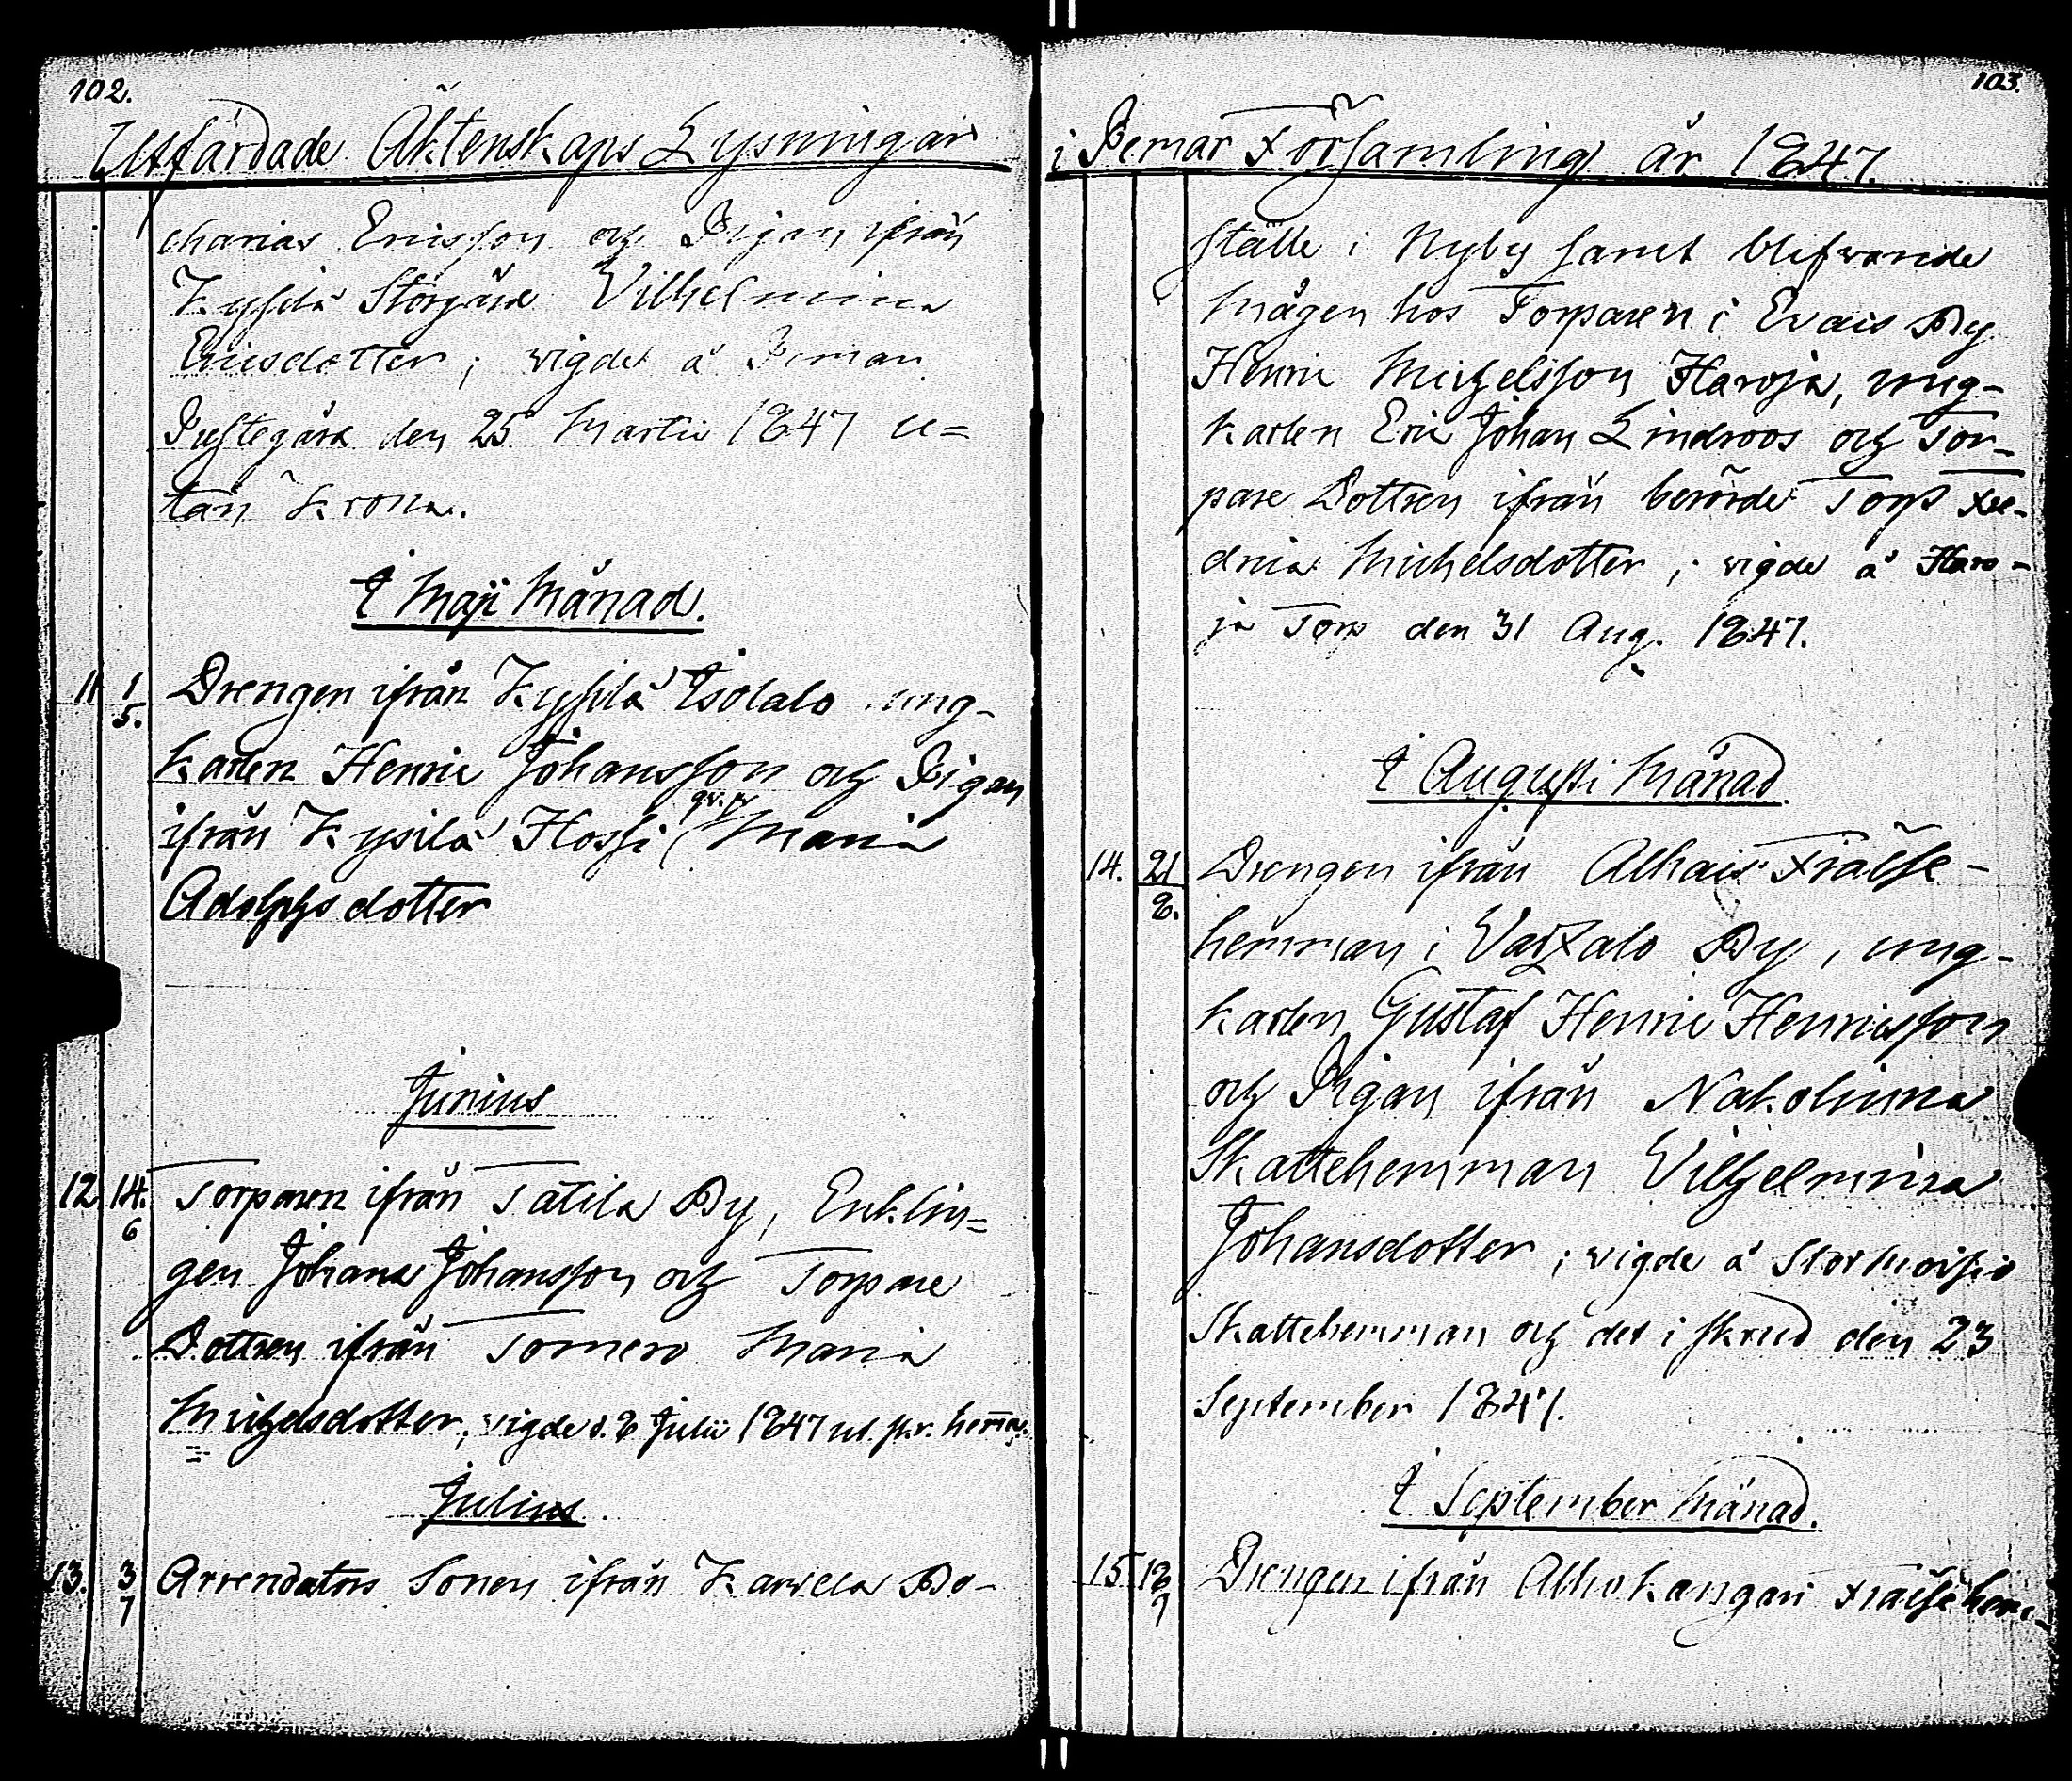 102.
Utfärdade Äktenskaps Lysningar
charias Ericsson och Pigan ifrån
Kyssilä Storgård Vilhelmina
Ericsdotter; vigdes å Pemar
Prestegård den 25 Martii 1847 u=
tan Krona.
I Maji Månad.
11 1/5. Drengen ifrån Kyssilä Isotalo ung-
karlen Henric Johansson och Pigan
ifrån Kysilä Hossi Maria
Adolphsdotter
Junius
12 14./6 Torparen ifrån Tätilä By, Enklin=
gen Johan Johansson och Torpare
Dottren ifrån Tornero Maria
Michelsdotter; vigde d. 8 Julii 1847 ut. skr. hema.
Julius.
13. 3/7 Arrendators Sonen ifrån Karvela Bo-
103.
i Pemar Församling år 1847.
ställe i Nyby samt blifvande
Mågen hos Torparen i Evais By
Henric Michelsson Haroja, ung-
karlen Eric Johan Lindroos och Tor-
pare Dottren ifrån berörde Torp Fre-
drica Michelsdotter; vigde å Haro-
ja Torp den 31 Aug. 1847.
I Augusti Månad
14. 21/8. Drengen ifrån Alhais Frälse-
hemman i Vackalo By, ung-
karlen Gustaf Henric Henricsson
och Pigan ifrån Nakolinna
Skattehemman Vilhelmina
Johansdotter; vigde å Stor
Skattehemman och det i skrud den 23
September 1847.
I September Månad.
15 18/9 Drengen ifrån Alhokangari Frälsehem-